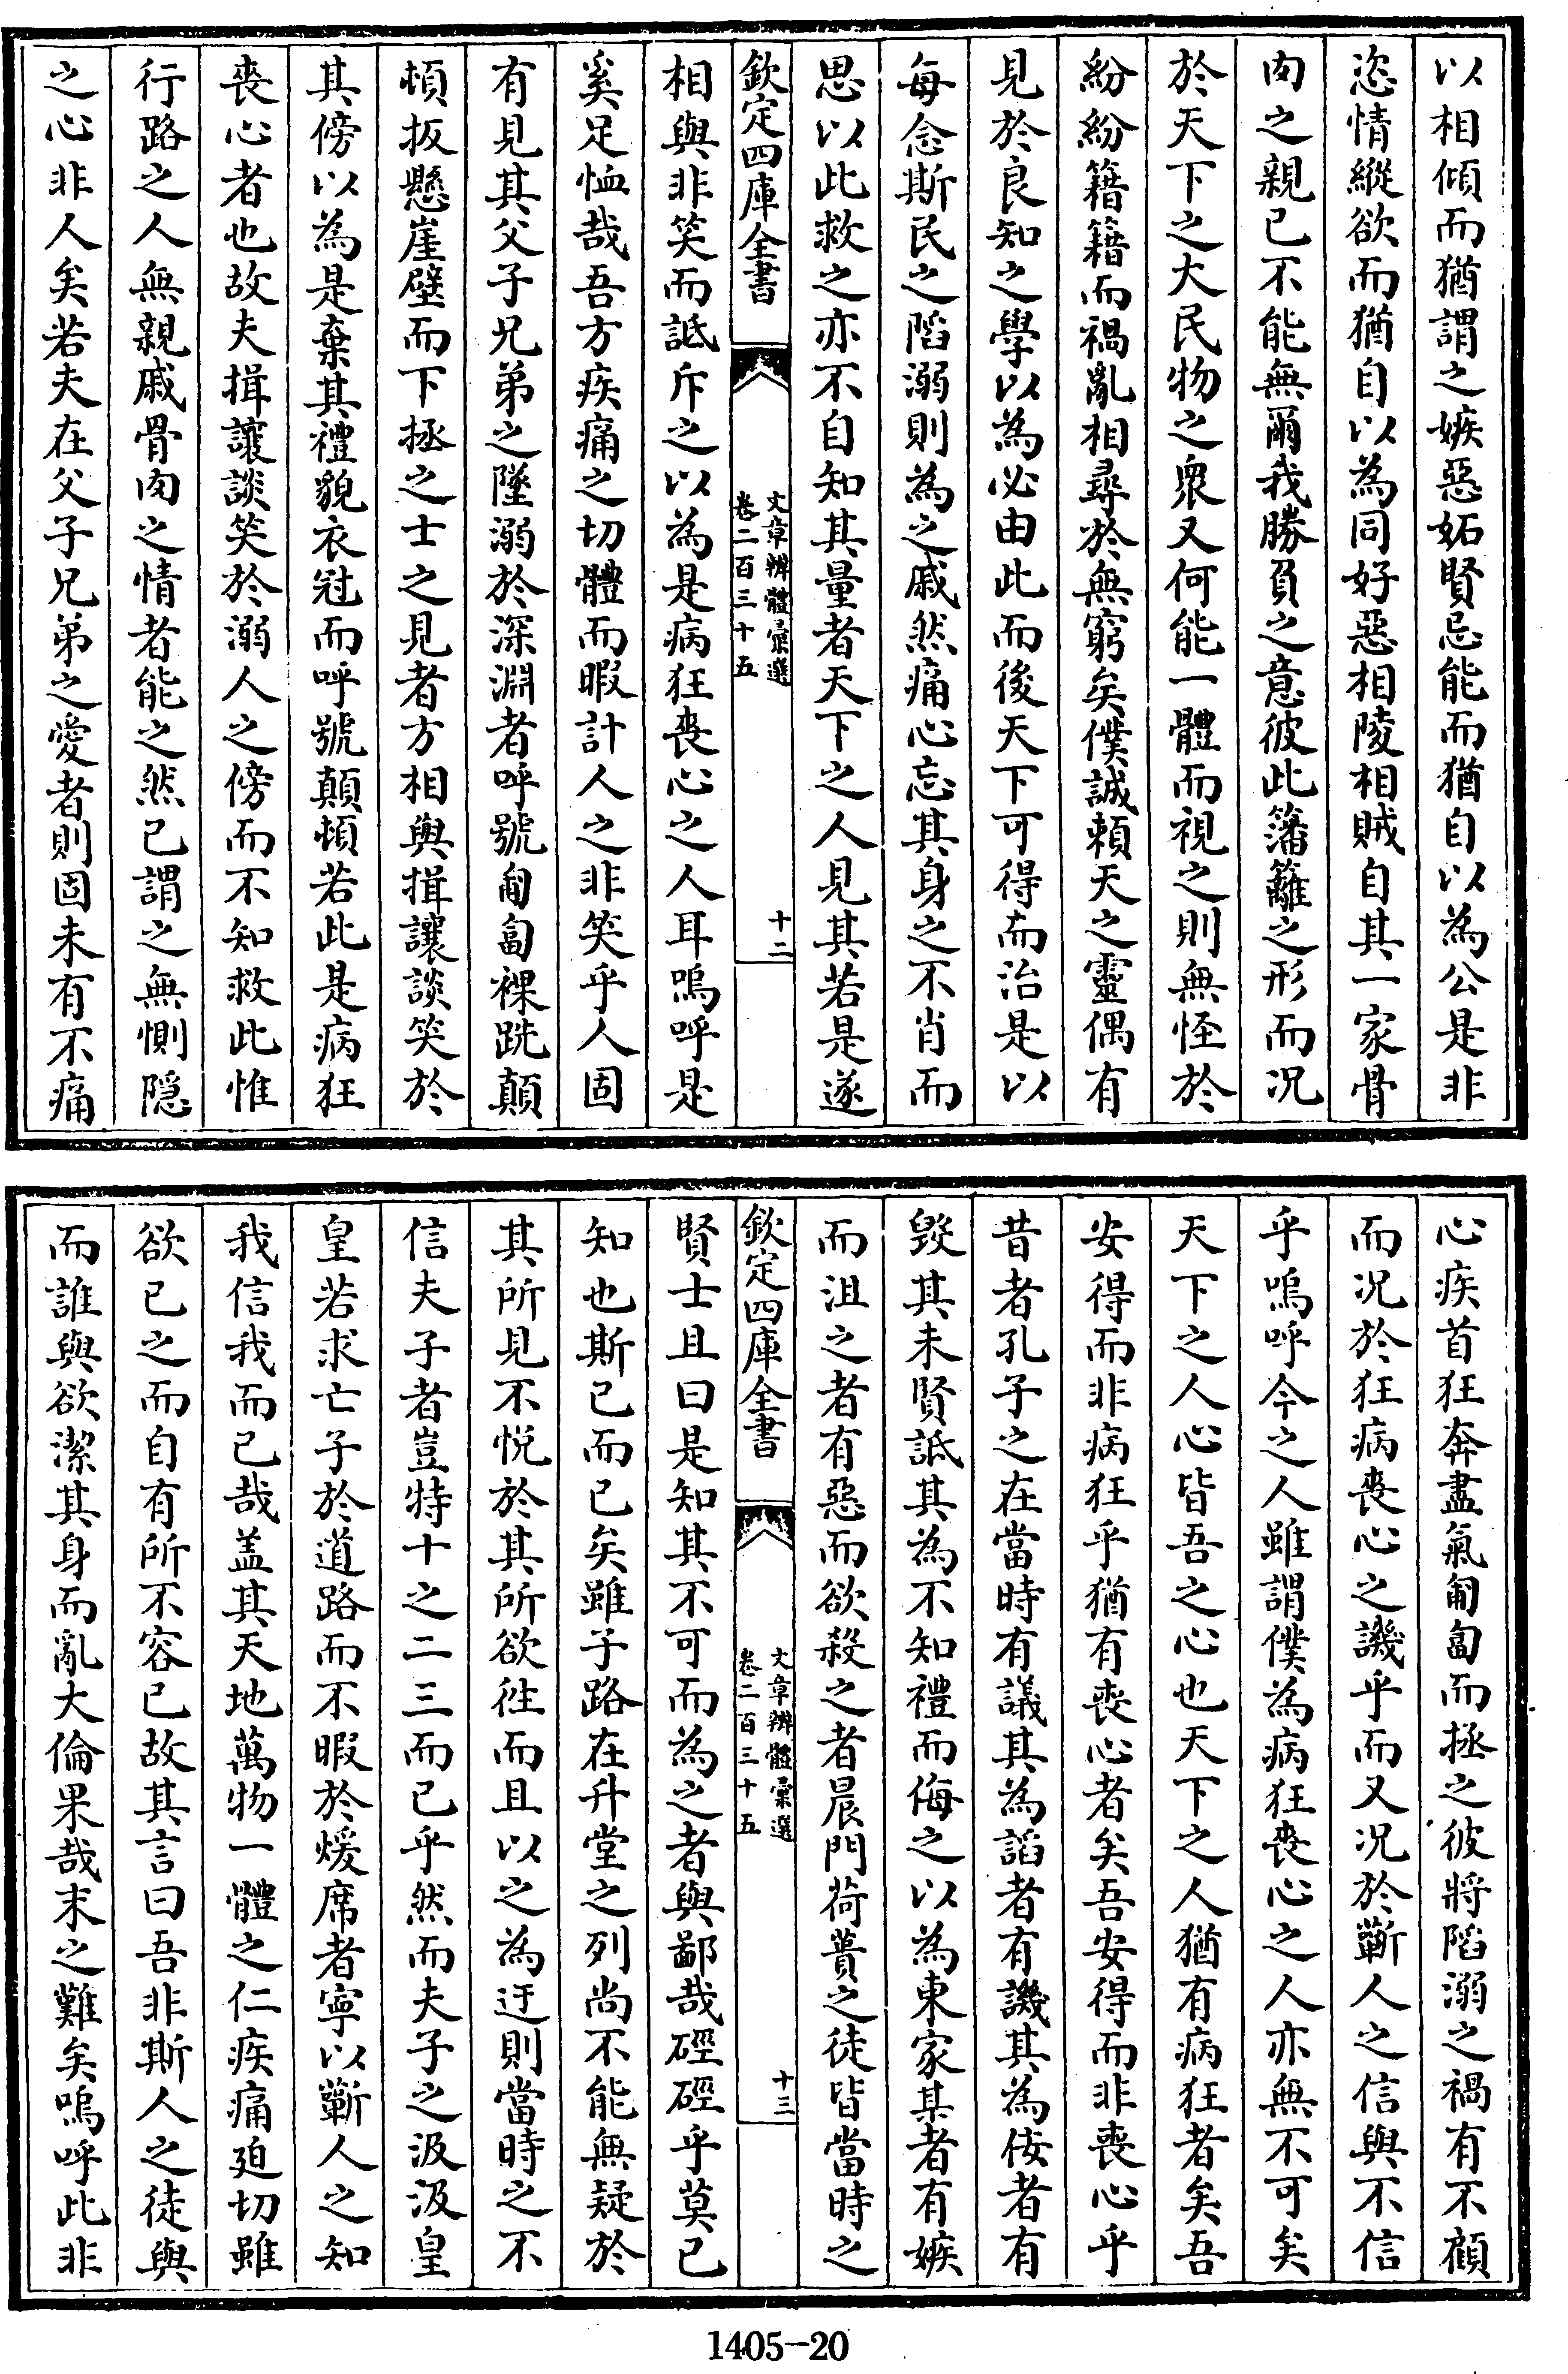 以相傾而猶謂之嫉惡妬賢忌能而猶自以為公是非
恣情縱欲而猶自以為同好惡相陵相賊自其一家骨
肉之親已不能無爾我勝負之意彼此藩籬之形而况
於天下之大民物之衆又何能一體而視之則無怪於
紛紛籍籍而禍亂相尋於無窮矣僕誠賴天之靈偶有
見於良知之學以為必由此而後天下可得而治是以
每念斯民之陷溺則為之戚然痛心忘其身之不肖而
思以此救之亦不自知其量者天下之人見其若是遂
欽定四庫全書
文章辨體彙選
卷二百三十五
十二
相與非笑而詆斥之以為是病狂喪心之人耳嗚呼是
奚足恤哉吾方疾痛之切體而暇計人之非笑乎人固
有見其父子兄弟之墜溺於深淵者呼號匍匐裸跣顛
頓扳懸崖壁而下拯之士之見者方相與揖讓談笑於
其傍以為是棄其禮貌衣冠而呼號顛頓若此是病狂
喪心者也故夫揖讓談笑於溺人之傍而不知救此惟
行路之人無親戚骨肉之情者能之然已謂之無惻隱
之心非人矣若夫在父子兄弟之愛者則固未有不痛
心疾首狂奔盡氣匍匐而拯之彼將陷溺之禍有不顧
而况於狂病喪心之譏乎而又况於蘄人之信與不信
乎嗚呼今之人雖謂僕為病狂喪心之人亦無不可矣
天下之人心皆吾之心也天下之人猶有病狂者矣吾
安得而非病狂乎猶有喪心者矣吾安得而非喪心乎
昔者孔子之在當時有議其為謟者有譏其為佞者有
毀其未賢詆其為不知禮而侮之以為東家某者有嫉
而沮之者有惡而欲殺之者晨門荷蕢之徒皆當時之
欽定四庫全書
文章辨體彙選
卷二百三十五
十三
賢士且曰是知其不可而為之者與鄙哉硜硜乎莫已
知也斯已而已矣雖子路在升堂之列尚不能無疑於
其所見不悅於其所欲徃而且以之為迂則當時之不
信夫子者豈特十之二三而已乎然而夫子之汲汲皇
皇若求亡子於道路而不暇於煖席者寧以蘄人之知
我信我而已哉盖其天地萬物一體之仁疾痛廹切雖
欲已之而自有所不容已故其言曰吾非斯人之徒與
而誰與欲潔其身而亂大倫果哉末之難矣嗚呼此非
1405-20